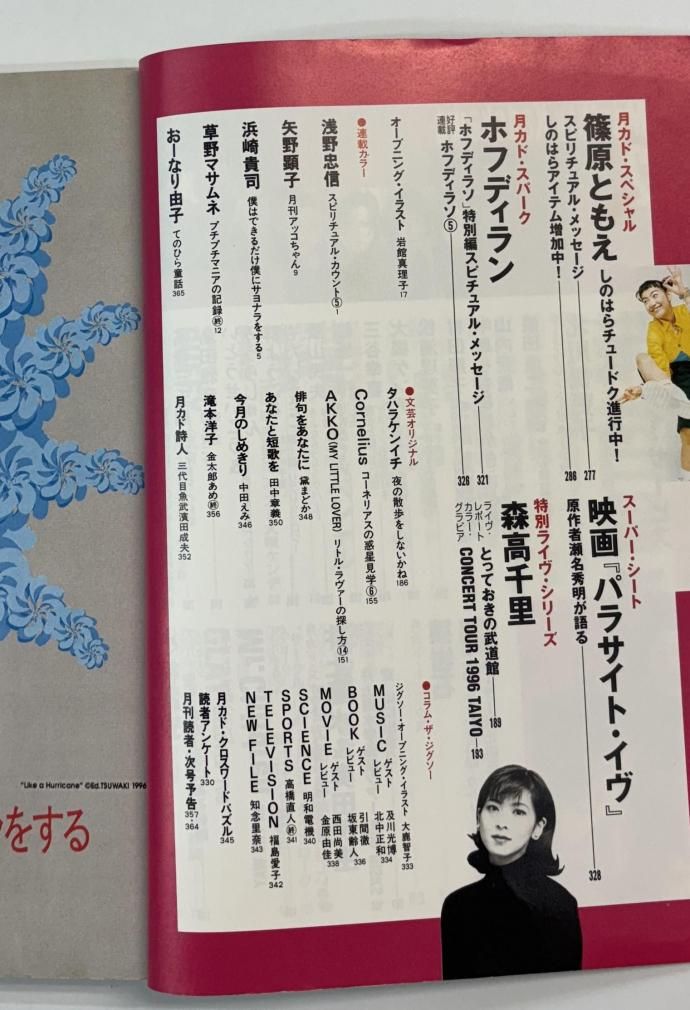 月カド・スペシャル
篠原ともえ しのはらチュードク進行中! 277
スピリチュアル・メッセージ
しのはらアイテム増加中! 286
月カド・スパーク
ホフディラン
「ホフディラン」特別編スピチュアル・メッセージ 321
好評連載 ホフディラン⑤ 326
スーパー・シート
映画『パラサイト・イヴ』 328
原作者瀬名秀明が語る
特別ライヴ・シリーズ
森高千里
ライヴ・レポート とっておきの武道館 189
カラー・グラビア CONCERT TOUR 1996 TAIYO 193
オープニング・イラスト 岩館真理子 17
●連載カラー
浅野忠信 スピリチュアル・カウント⑤ 1
矢野顕子 月刊アッコちゃん 9
浜崎貴司 僕はできるだけ僕にサヨナラをする 5
草野マサムネ プチプチマニアの記録㊡ 12
おーなり由子 てのひら童話 365
●文芸オリジナル
タハラケンイチ 夜の散歩をしないかね 186
Cornelius コーネリアスの惑星見学⑥ 155
AKKO(MY LITTLE LOVER) リトル・ラヴァーの探し方⑭ 151
俳句をあなたに 黛まどか 348
あなたと短歌を 田中章義 350
今月のしめきり 中田えみ 346
滝本洋子 金太郎あめ㊡ 356
月カド詩人 三代目魚武濱田成夫 352
●コラム・ザ・ジグソー
ジグソー・オープニング・イラスト 大鹿智子 333
MUSIC ゲスト 及川光博
レビュー 北中正和 334
BOOK ゲスト 引間徹
レビュー 坂東齢人 336
MOVIE ゲスト 西田尚美
レビュー 金原由佳 338
SCIENCE 明和電機 340
SPORTS 高橋直人㊡ 341
TELEVISION 福島愛子 342
NEW FILE 知念里奈 343
月カド・クロスワードパズル 345
読者アンケート 330
月刊読者・次号予告 357・364
"Like a Hurricane" ©Ed.TSUWAKI 1996
をする